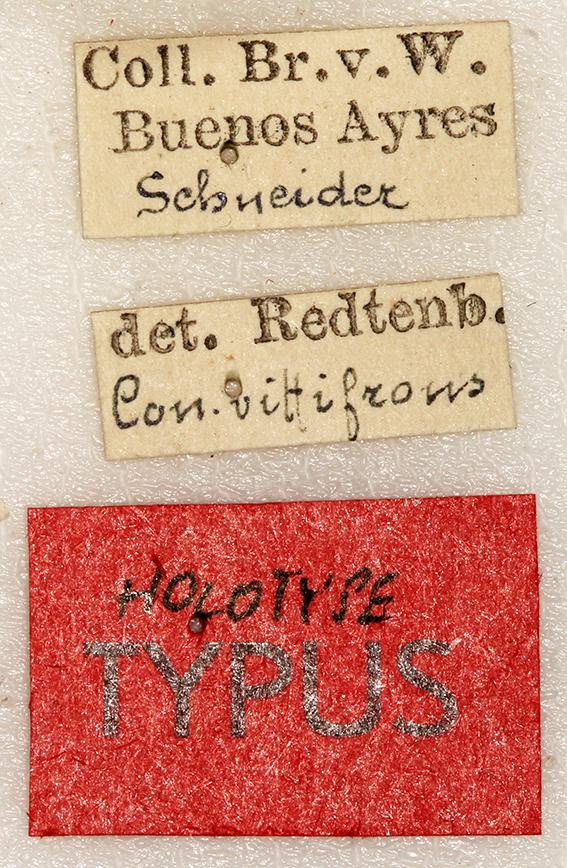 Coll. Br. v. W.
Buenos Ayres
Schneider
det. Redtenb.
Con. vittifrons
HOLOTYPE
TYPUS